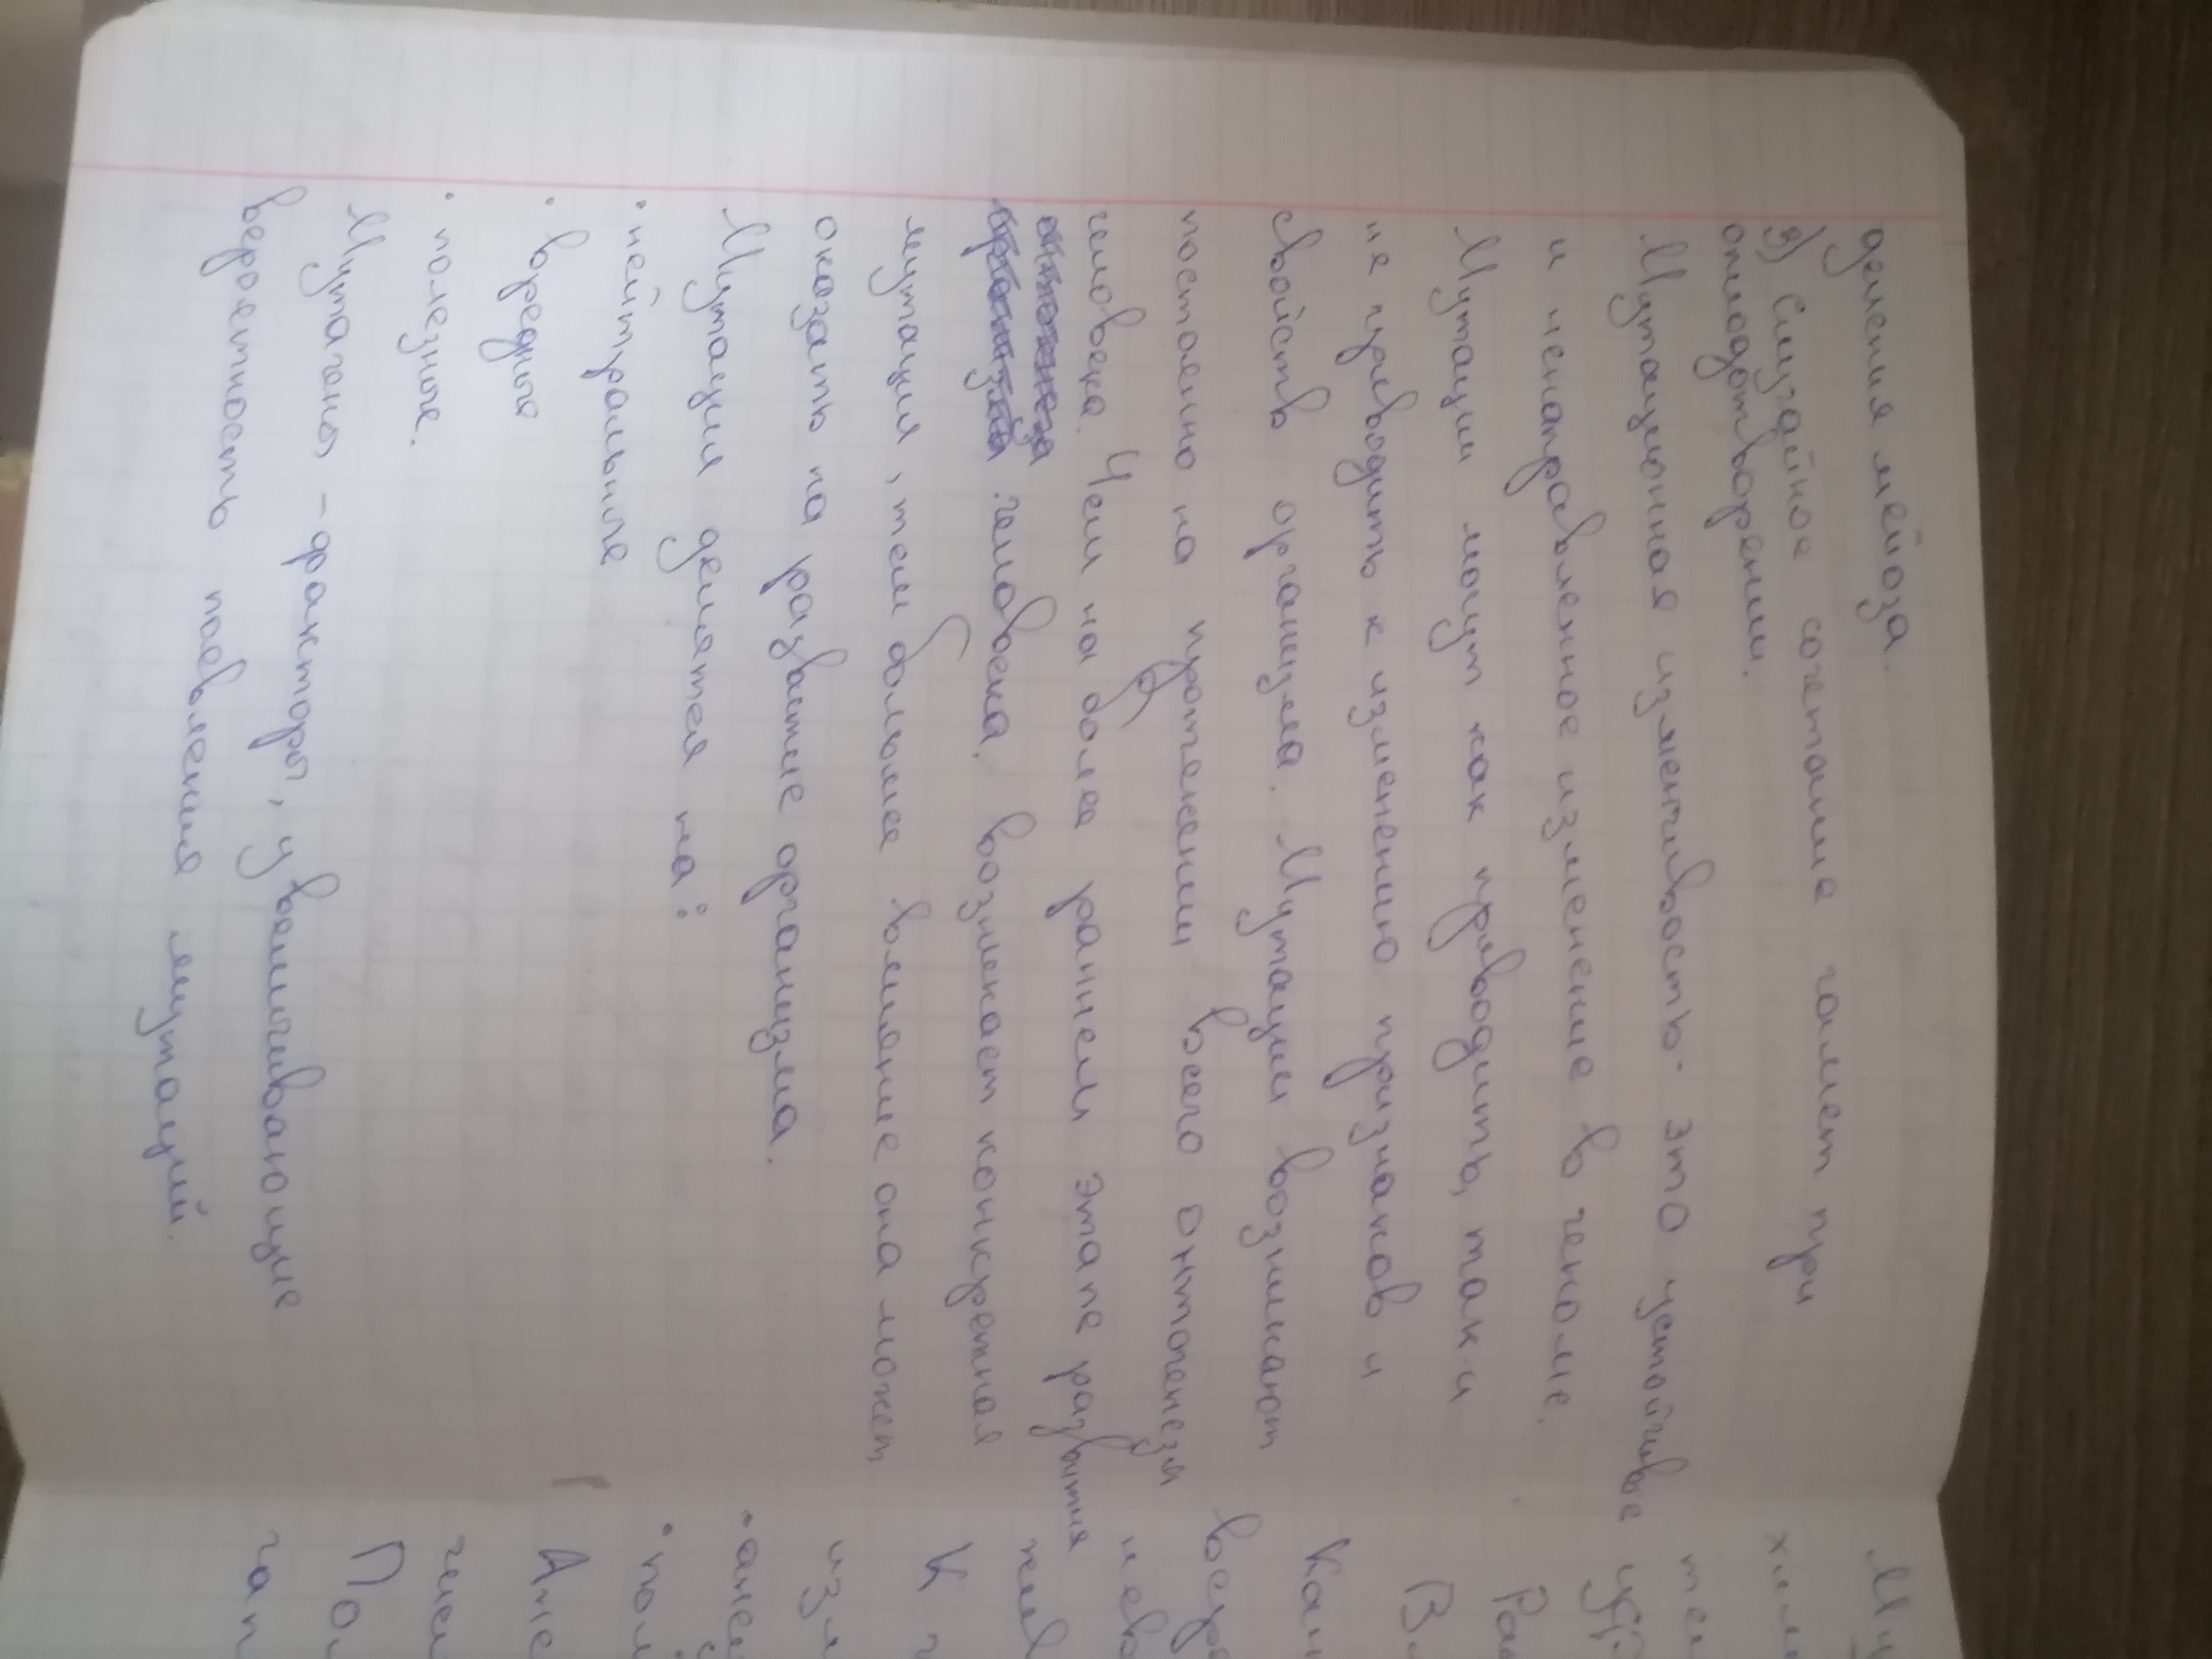 деления мейоза.
3) Случайное сочетание гамет при
оплодотворении.
Мутационная изменчивость - это устойчивое
и ненаправленное изменение в геноме.
Мутации могут как приводить, так и
не приводить к изменению признаков и
свойств организма. Мутации возникают
постоянно на протяжении всего онтогенеза
человека. Чем на более раннем этапе развития
онтогенеза
организма человека. возникает конкретная
мутация, тем большее влияние она может
оказать на развитие организма.
Мутации делятся на:
• нейтральные
• вредные
• полезные.
Мутагены - факторы, увеличивающие
вероятность появления мутаций.
Му
хими
тем
уф
Ра
В
Кан
веро
нево
К
изм
• анеу
• пол
Ане
Пол
гап